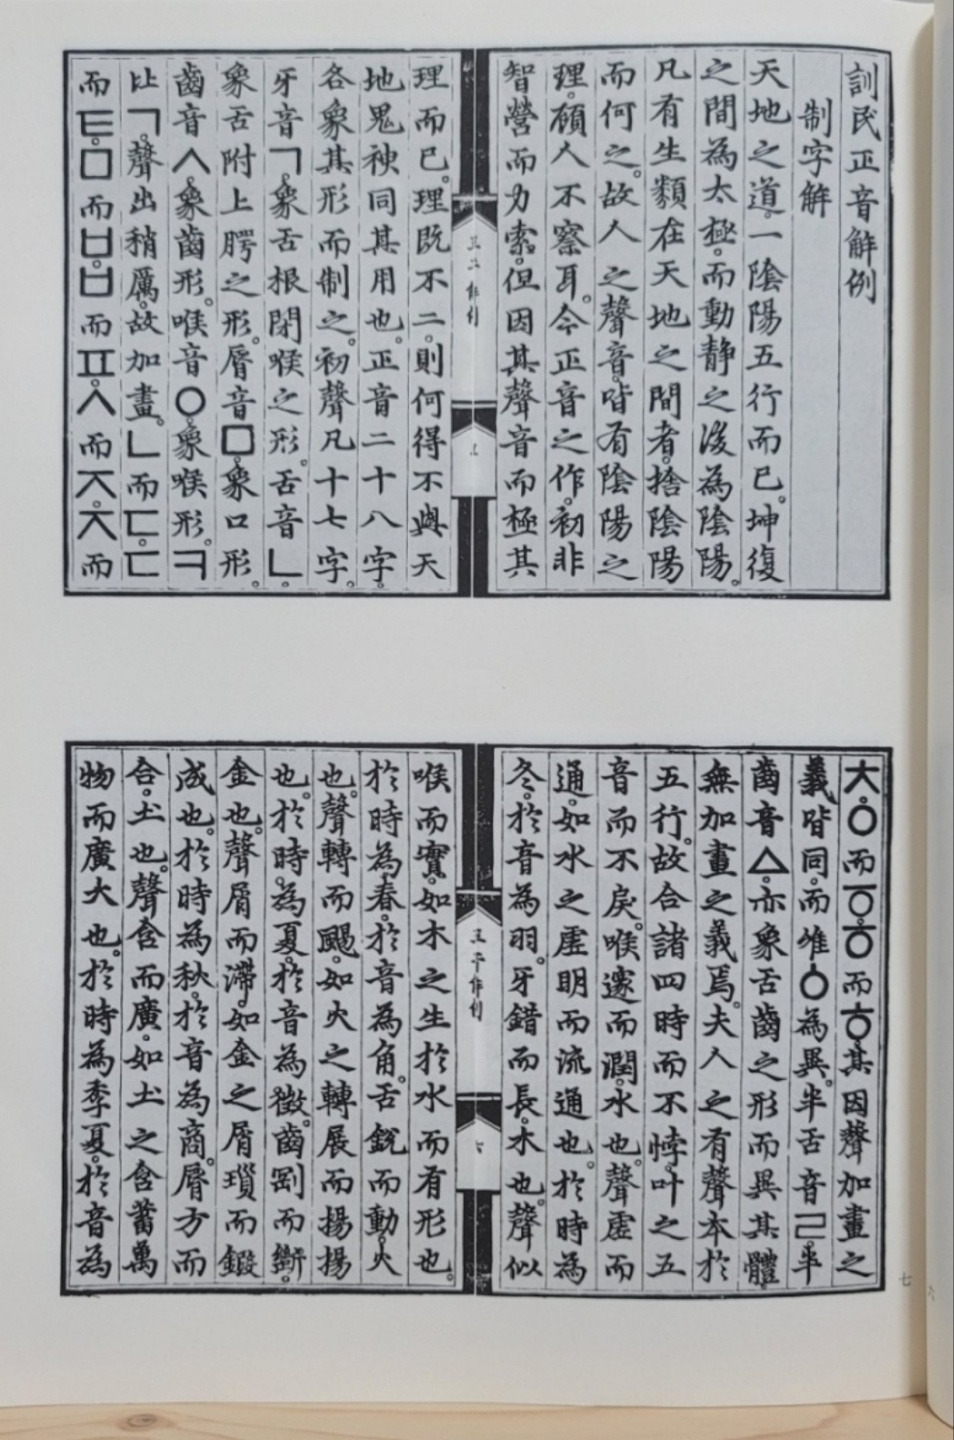 訓民正音解例
制字解
天地之道。一陰陽五行而已。坤復
之間為太極。而動靜之後為陰陽。
凡有生類在天地之間者。捨陰陽
而何之。故人之聲音。皆有陰陽之
理。顧人不察耳。今正音之作。初非
智營而力索。但因其聲音而極其
理而已。理既不二。則何得不與天
地鬼神同其用也。正音二十八字。
各象其形而制之。初聲凡十七字。
牙音ㄱ。象舌根閉喉之形。舌音ㄴ。
象舌附上腭之形。脣音ㅁ。象口形。
齒音ㅅ。象齒形。喉音ㅇ。象喉形。ㅋ
比ㄱ。聲出稍厲。故加畫。ㄴ而ㄷ。ㄷ
而ㅌ。ㅁ而ㅂ。ㅂ而ㅍ。ㅅ而ㅈ。ㅈ而
ㅊ。ㅇ而ㆆ。ㆆ而ㅎ。其因聲加畫之
義皆同。而唯ㆁ為異。半舌音ㄹ。半
齒音ㅿ。亦象舌齒之形而異其體。
無加畫之義焉。夫人之有聲本於
五行。故合諸四時而不悖。叶之五
音而不戾。喉邃而潤。水也。聲虛而
通。如水之虛明而流通也。於時為
冬。於音為羽。牙錯而長。木也。聲似
喉而實。如木之生於水而有形也。
於時為春。於音為角。舌銳而動。火
也。聲轉而颺。如火之轉展而揚揚
也。於時為夏。於音為徵。齒剛而斷。
金也。聲屑而滯。如金之屑瑣而鍛
成也。於時為秋。於音為商。脣方而
合。土也。聲含而廣。如土之含蓄萬
物而廣大也。於時為季夏。於音為
七